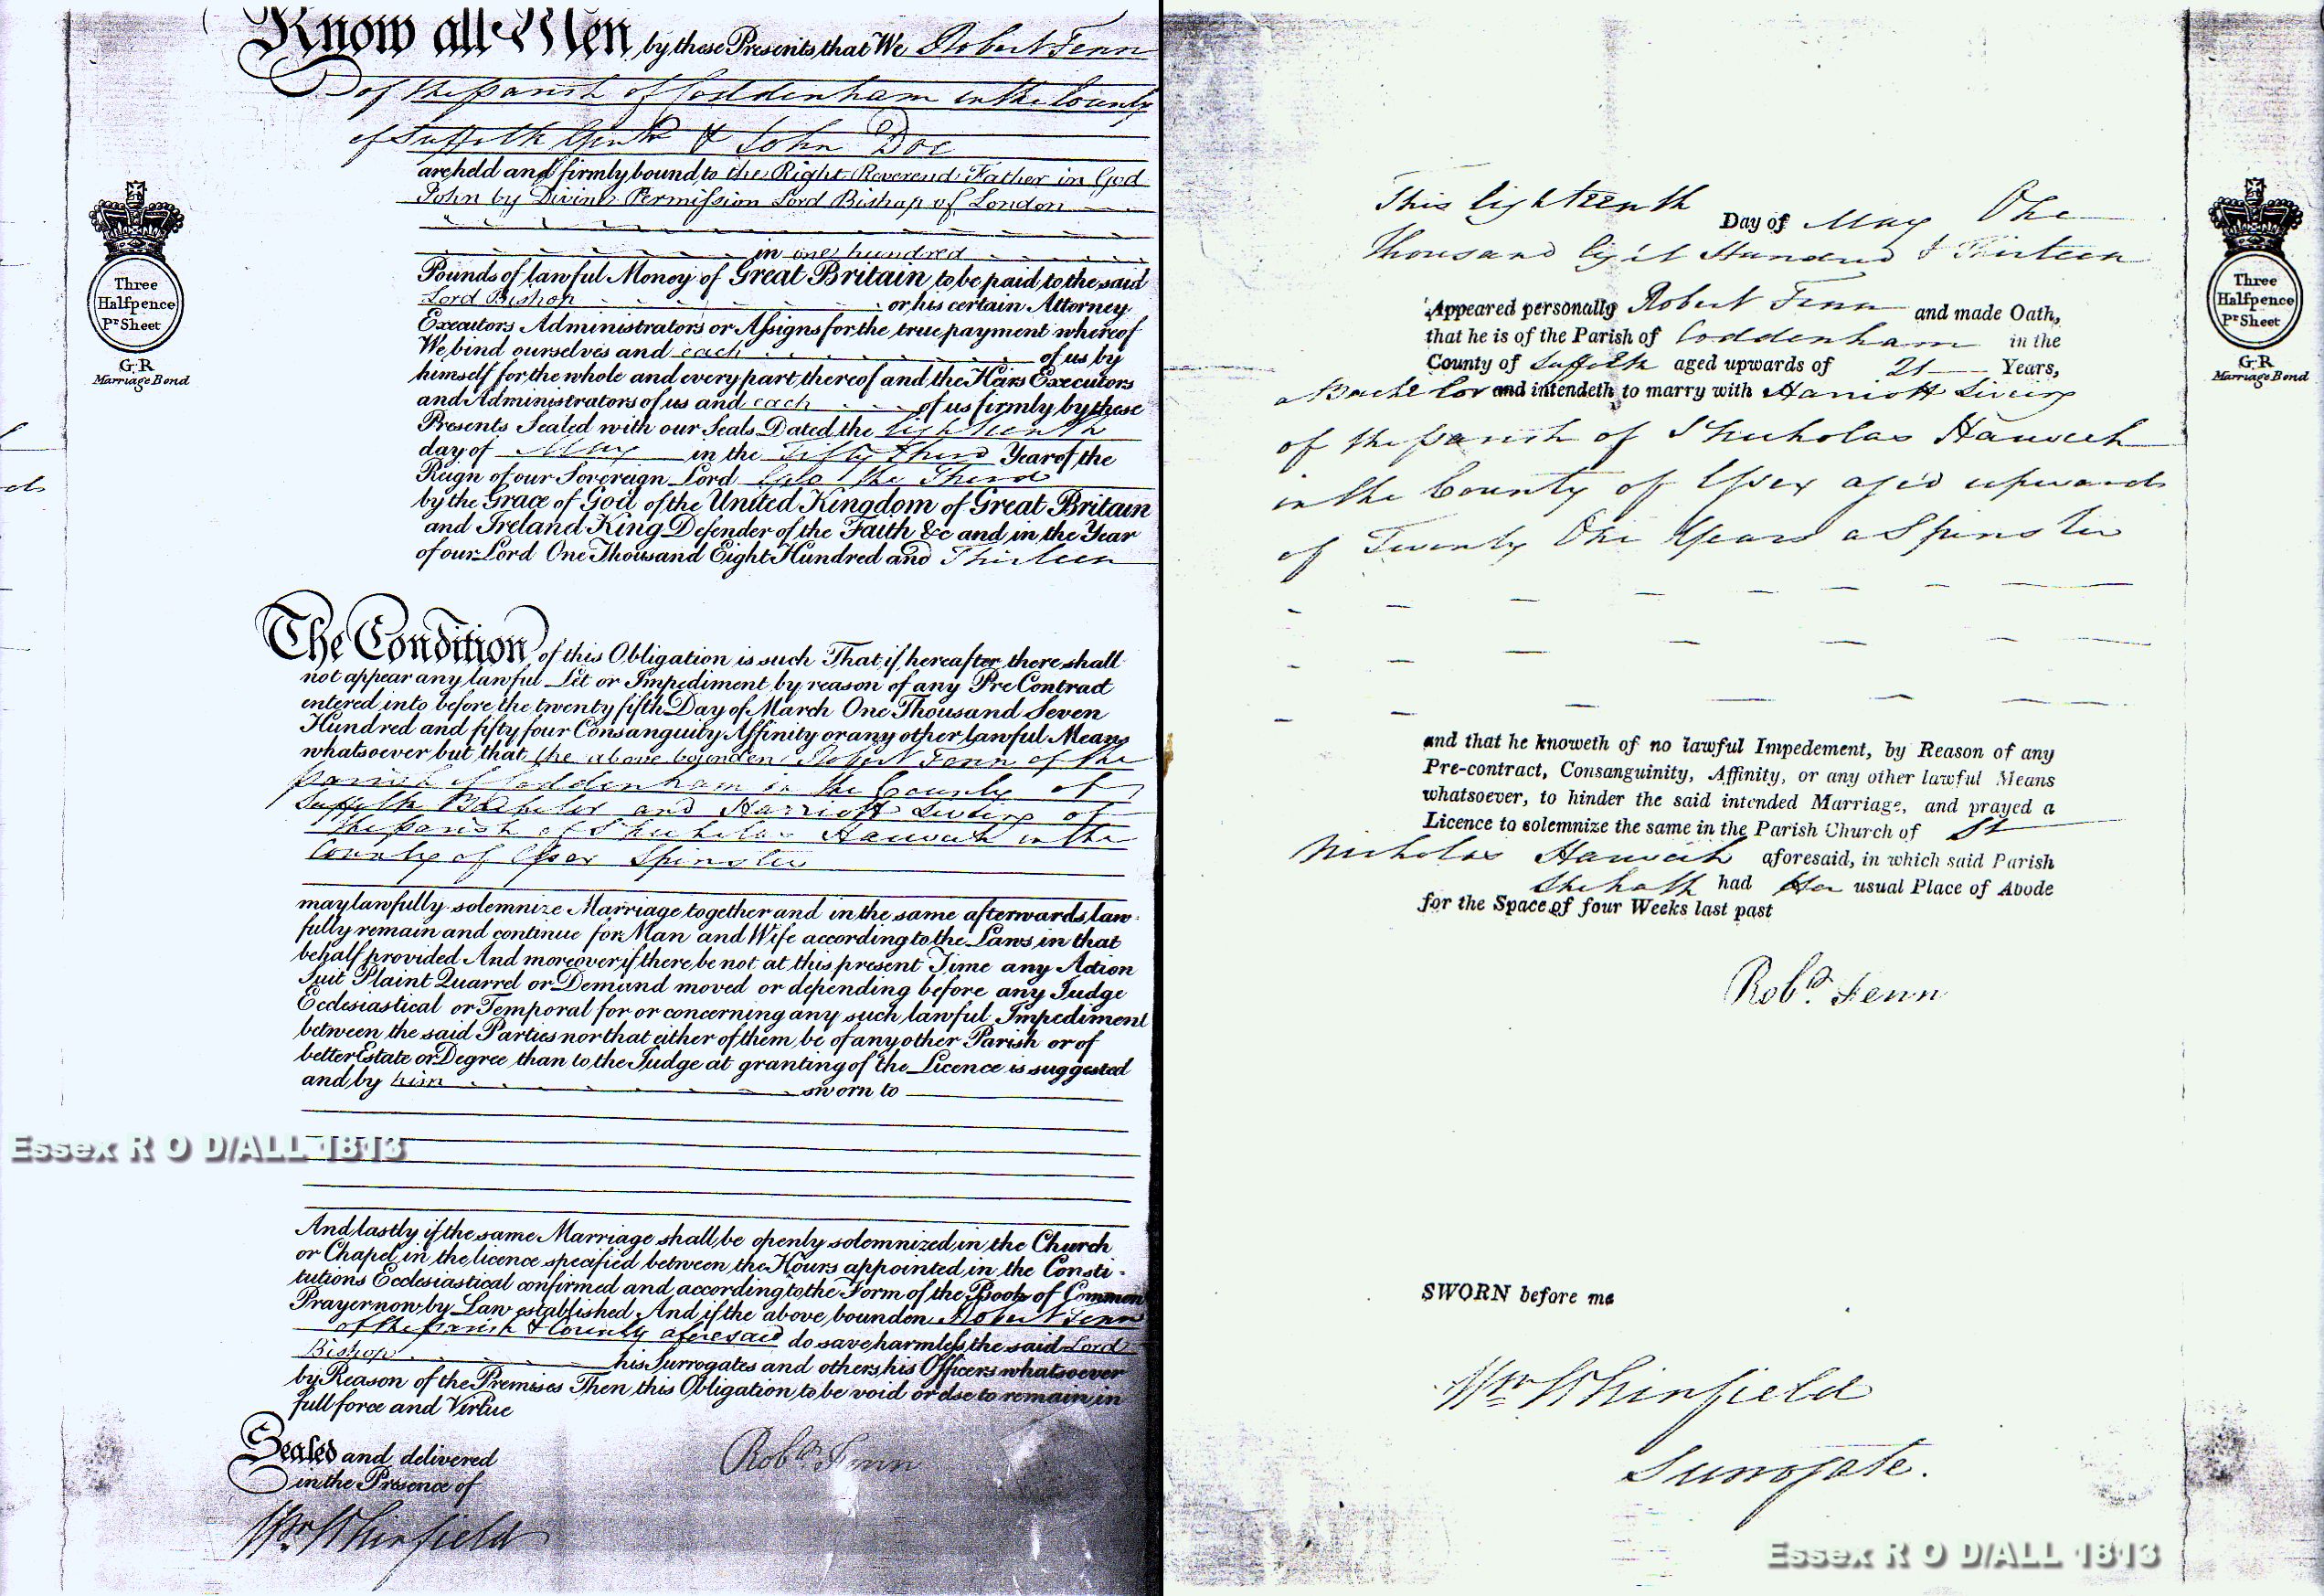 Know all Men by these Presents that We Robert Fenn
of the parish of Coddenham in the County
of Suffolk Gent & John Doe
are held and firmly bound to the Right Reverend Father in God
John by Divine Permission Lord Bishop of London
in one hundred
Pounds of lawful Money of Great Britain to be paid to the said
Lord Bishop or his certain Attorney
Executors Administrators or Assigns for the true payment whereof
We bind ourselves and each of us by
himself for the whole and every part thereof and the Heirs Executors
and Administrators of us and each of us firmly by these
Presents Sealed with our Seals Dated the Eighteenth
day of May in the Fifty Third Year of the
Reign of our Sovereign Lord Geo the Third
by the Grace of God of the United Kingdom of Great Britain
and Ireland King Defender of the Faith &c and in the Year
of our Lord One Thousand Eight Hundred and Thirteen
Three
Halfpence
Pr Sheet
G R
Marriage Bond
The Condition of this Obligation is such That if hereafter there shall
not appear any lawful Let or Impediment by reason of any Pre Contract
entered into before the twenty fifth Day of March One Thousand Seven
Hundred and fifty four Consanguity Affinity or any other lawful Means
whatsoever but that the above bounden Robert Fenn of the
parish of Coddenham in the County of
Suffolk Bachelor and Harriott Livering of
the parish of St Nicholas Harwich in the
County of Essex Spinster
may lawfully solemnize Marriage together and in the same afterwards law-
fully remain and continue for Man and Wife according to the Laws in that
behalf provided And moreover if there be not at this present Time any Action
Suit Plaint Quarrel or Demand moved or depending before any Judge
Ecclesiastical or Temporal for or concerning any such lawful Impediment
between the said Parties nor that either of them be of any other Parish or of
better Estate or Degree than to the Judge at granting of the Licence is suggested
and by him sworn to
Essex R O D/ALL 1813
And lastly if the same Marriage shall be openly solemnized in the Church
or Chapel in the licence specified between the Hours appointed in the Consti-
tutions Ecclesiastical confirmed and according to the Form of the Book of Common
Prayer now by Law established And if the above bounden Robert Fenn
of the parish & County aforesaid do save harmless the said Lord
Bishop his Surrogates and others his Officers whatsoever
by Reason of the Premises Then this Obligation to be void or else to remain in
full force and Virtue
Sealed and delivered
in the Presence of
Robt Fenn
Wm Whinfield
This Eighteenth Day of May One
Thousand Eight Hundred & Thirteen
Appeared personally Robert Fenn and made Oath,
that he is of the Parish of Coddenham in the
County of Suffolk aged upwards of 21 Years,
a Bachelor and intendeth to marry with Harriott
of the parish of St Nicholas Harwich
in the County of Essex aged upwards
of Twenty One Years a Spinster
and that he knoweth of no lawful Impedement, by Reason of any
Pre-contract, Consanguinity, Affinity, or any other lawful Means
whatsoever, to hinder the said intended Marriage, and prayed a
Licence to solemnize the same in the Parish Church of St
Nicholas Harwich aforesaid, in which said Parish
She hath had Her usual Place of Abode
for the Space of four Weeks last past
Robt Fenn
SWORN before me
Wm Whinfield
Surrogate.
Three
Halfpence
Pr Sheet
G R
Marriage Bond
Essex R O D/ALL 1813